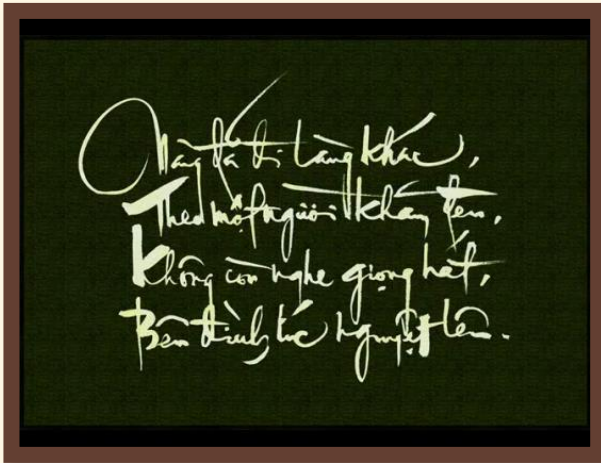 Nàng đã đi làng khác,
Theo một người khăn đen,
Không còn nghe giọng hát,
Bên đình lúc nguyệt lên.